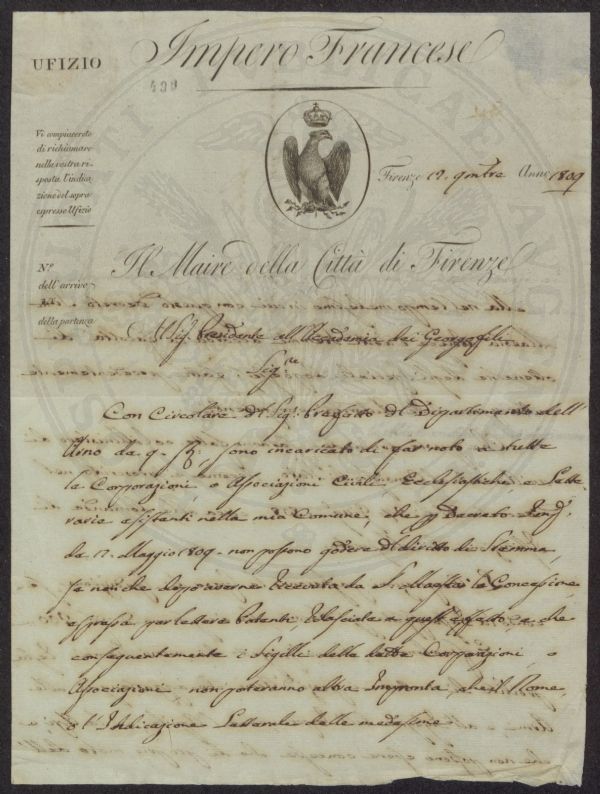 UFIZIO
Impero Francese
499
Vi compiacerete
di richiamare
nella vostra ri-
sposta l'indica-
zione del sopra-
espresso Ufizio
Firenze 12. 9mbre Anno 1809
Il Maire della Città di Firenze
N.º
dell'arrivo
della partenza
Al Sig.r Presidente all'Accademia dei Georgofili
Sig.re
Con Circolare d'l Sig.r Prefetto d'l Dipartimento dell'
Arno de 9. sono incaricato di far noto a tutte
le Corporazioni o Associazioni Civili Ecclesiastiche, e Lette
rarie esistenti nella mia Comune, che p Decreto
de 17. Maggio 1809. non possono godere d'l diritto di Stemma,
se non che dopo averne ricevuta da S. Maestà la Concessione
espressa per lettere Patenti rilasciate a quest'effetto, e che
conseguentemente i Sigilli delle dette Corporazioni, o
Associazioni non poteranno altra Impronta, che il Nome,
o l'Indicazione Letterale delle medesime.